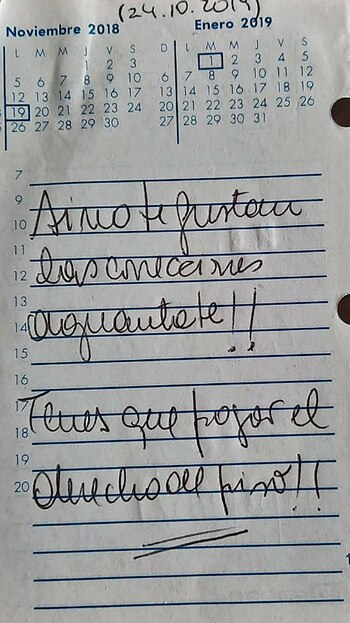 Noviembre 2018 Enero 2019
L M M J V S D L M M J V S
1 2 3 1 2 3 4 5
5 6 7 8 9 10 6 7 8 9 10 11 12
12 13 14 15 16 17 13 14 15 16 17 18 19
19 20 21 22 23 24 20 21 22 23 24 25 26
26 27 28 29 30 27 28 29 30 31
7
9
10 Si no te gustan
11
12 las correciones
13
14 aguantate!!
15
16
17 Tenes que pagar el
18
19
20 derecho de piso!!